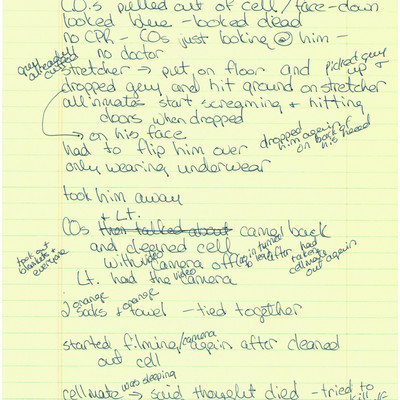 C.O.s pulled out of cell / face-down
looked blue - looked dead
no CPR - COs just looking @ him -
no doctor
guy already cuffed
stretcher → put on floor and picked guy up +
dropped guy and hit ground on stretcher
all inmates start screaming + hitting
doors when dropped
→ on his face
had to flip him over dropped him again on back of his head
only wearing underwear
took him away
+ Lt.
COs then talked about came back
and cleaned cell
with video camera off again turned
to after had taken
cellmate
out again
took out
blankets +
everyone
Lt. had the video camera
2 orange socks + orange towel - tied together
started filming / camera again after cleaned
out cell
cellmate was sleeping → said thought died - tried to